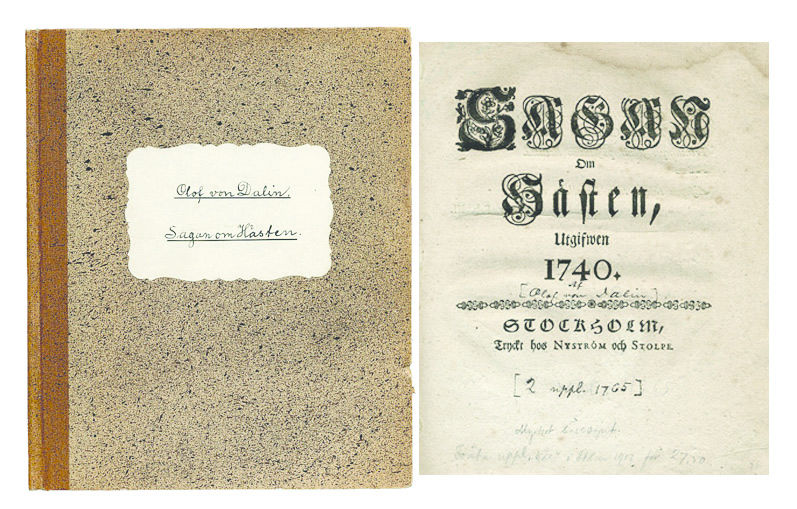 Olof von Dalin.
Sagan om Hästen.
SAGAN
Om
Hästen,
Utgifwen
1740.
af
[Olof von Dalin]
STOCKHOLM,
Tryckt hos NYSTRÖM och STOLPE.
[2 uppl. 1765]
Mycket
uppl.